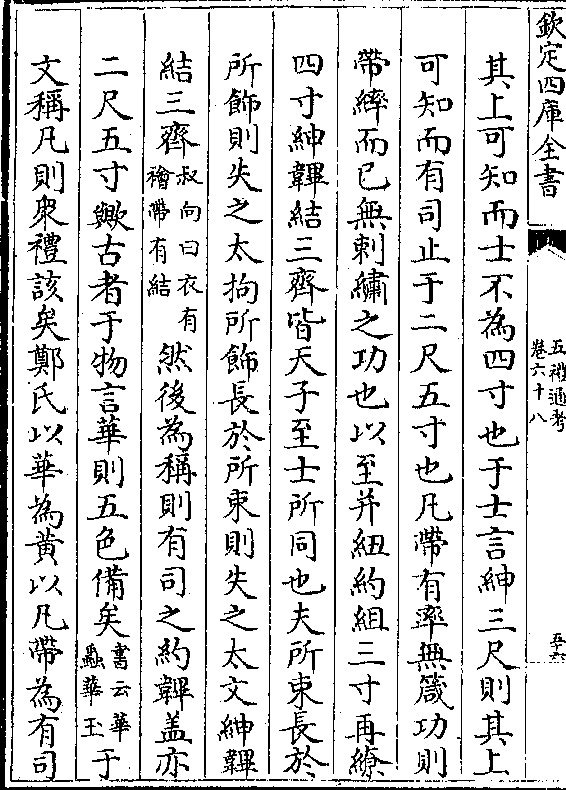 欽定四庫全書
五禮通考
卷六十八
其上可知而士不為四寸也于士言紳三尺則其上
可知而有司止于二尺五寸也凡帶有率無箴功則
帶繂而已無刺繡之功也以至并紐約組三寸再繚
四寸紳韠結三齊皆天子至士所同也夫所束長於
所飾則失之太拘所飾長於所束則失之太文紳韠
結三齊叔向曰衣有襘帶有結然後為稱則有司之約韠盖亦
二尺五寸歟古者于物言華則五色備矣書云華蟲華玉于
文稱凡則衆禮該矣鄭氏以華為黃以凡帶為有司